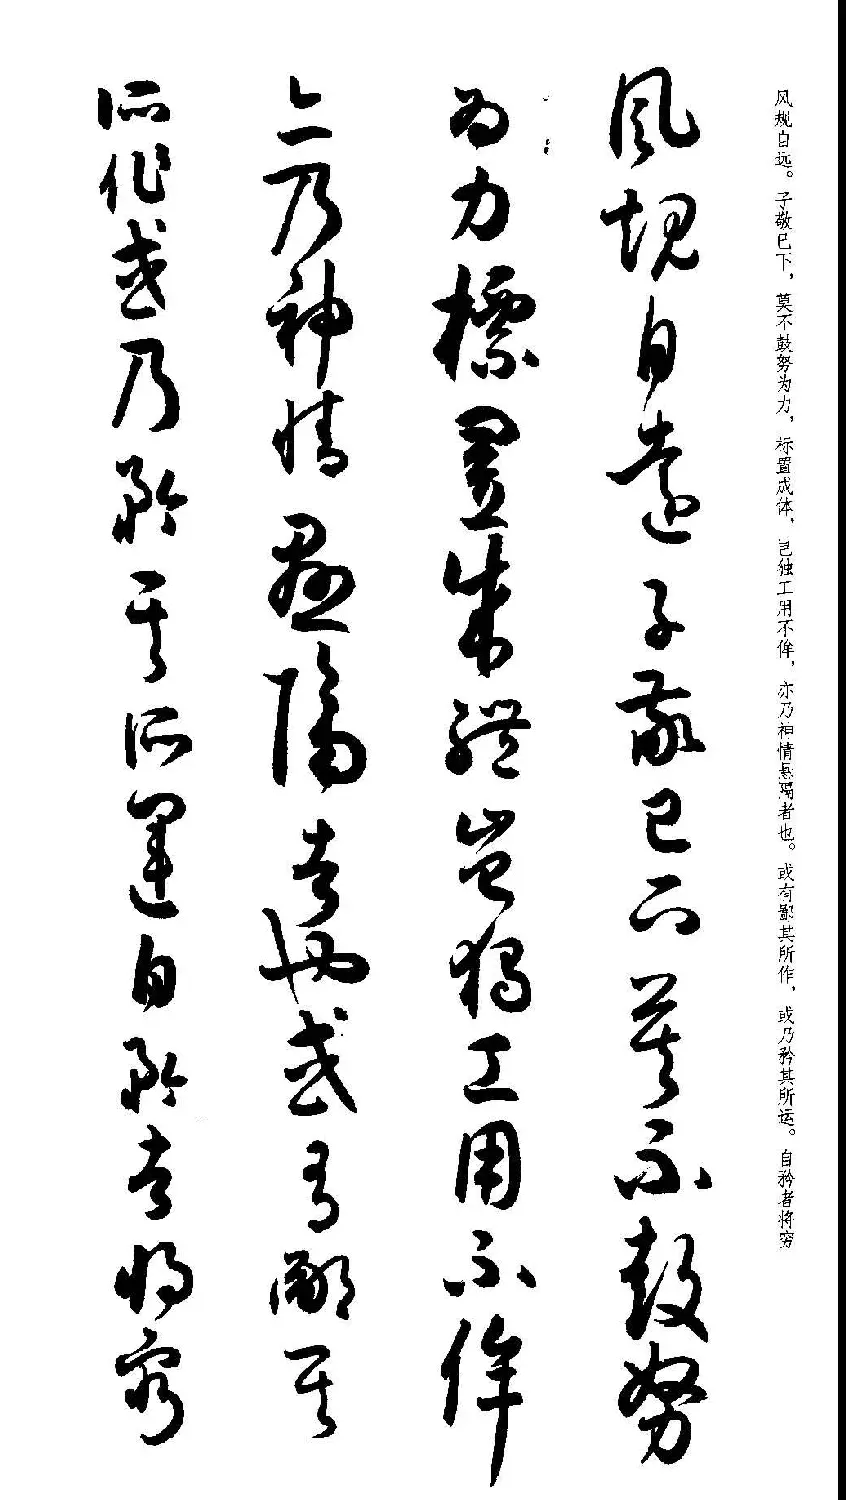 风规自远。子敬已下，莫不鼓努为力，标置成体，岂独工用不侔，亦乃神情悬隔者也。或有鄙其所作，或乃矜其所运。自矜者将穷
風規自遠子敬已下莫不鼓努
為力標置成體豈獨工用不侔
亦乃神情懸隔者也或有鄙其
所作或乃矜其所運自矜者將窮